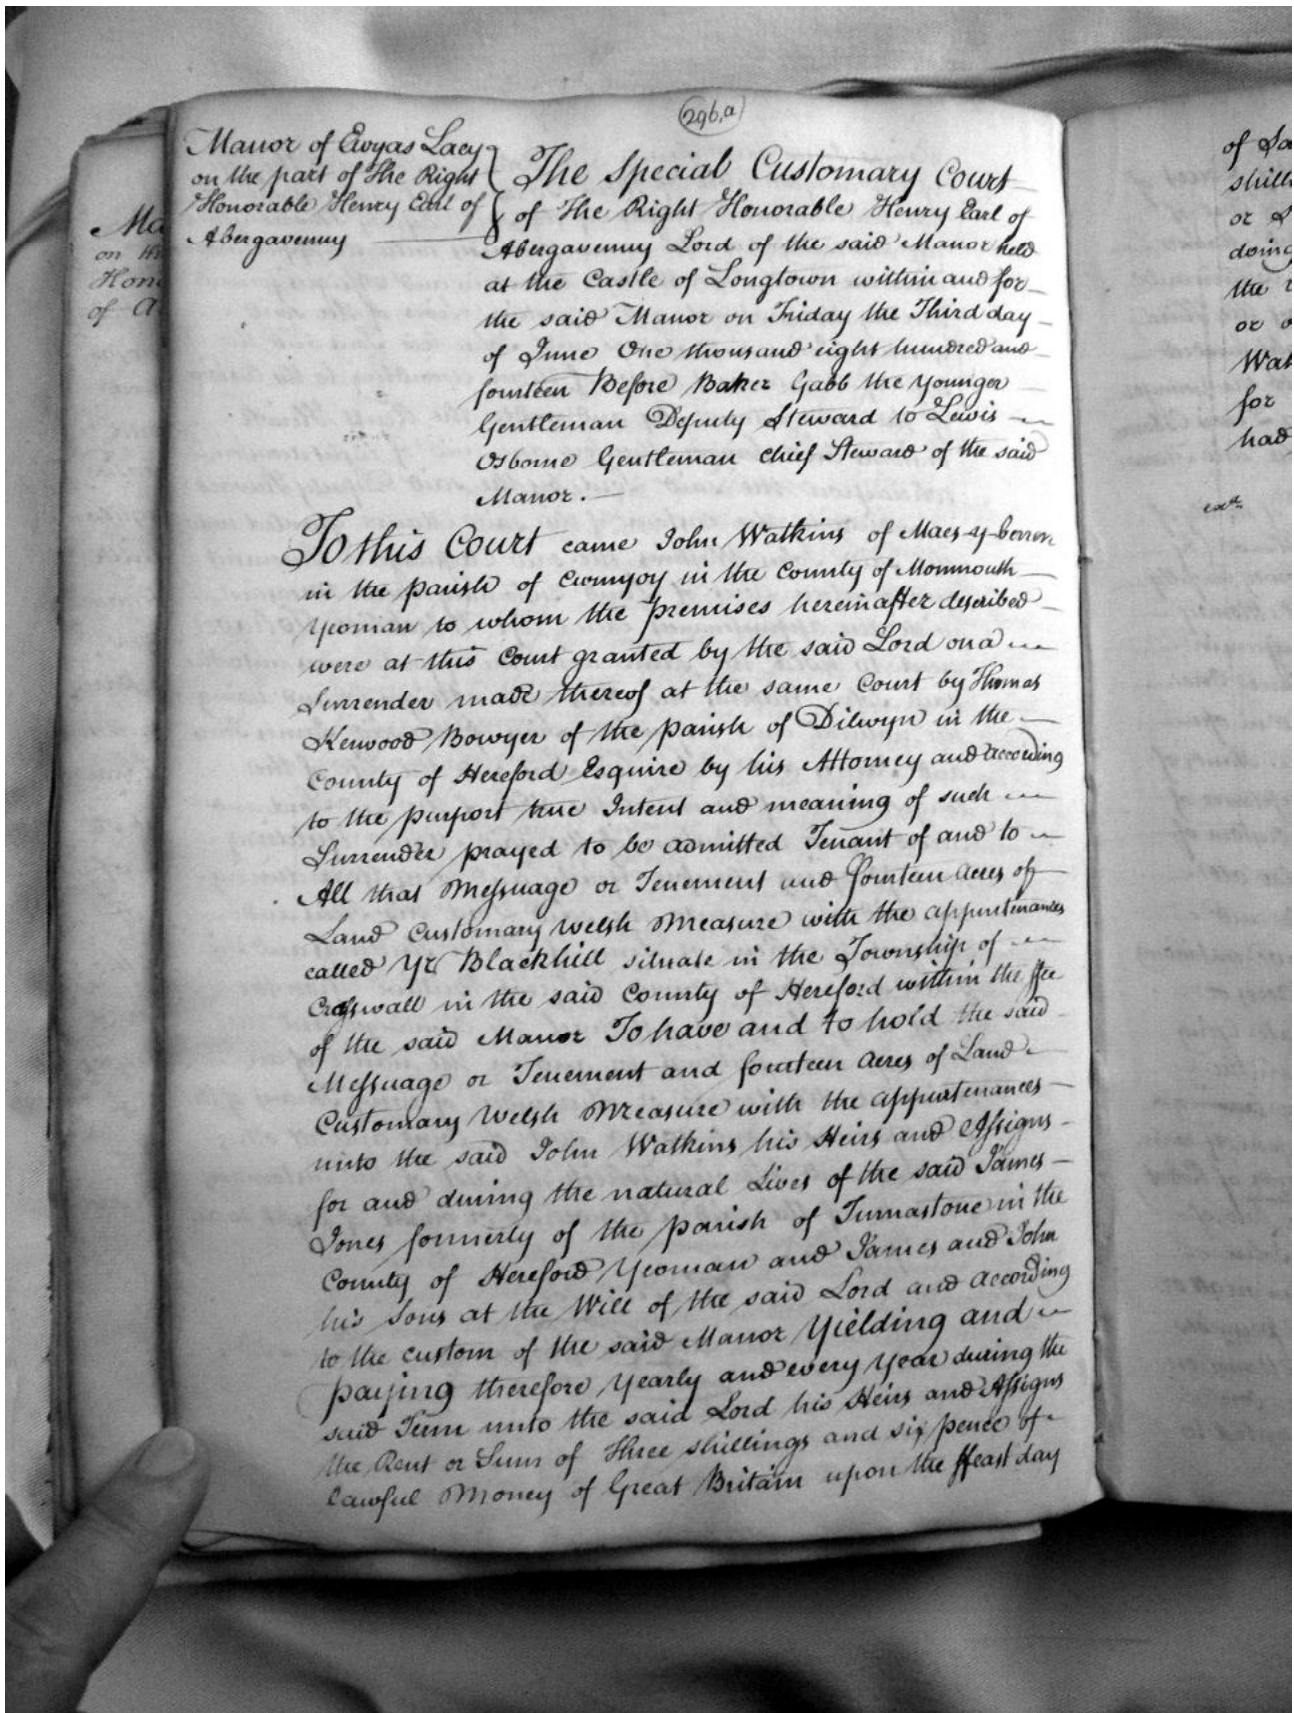 296,a
Manor of Ewyas Lacy
on the part of The Right
Honorable Henry Earl of
Abergavenny
The Special Customary Court
of The Right Honorable Henry Earl of
Abergavenny Lord of the said Manor held
at the Castle of Longtown within and for
the said Manor on Friday the Third day
of June One thousand eight hundred and
fourteen Before Baker Gabb the younger
Gentleman Deputy Steward to Lewis
Osborne Gentleman chief Steward of the said
Manor.
To this Court came John Watkins of Maes-y-berren
in the parish of Cwmyoy in the County of Monmouth
yeoman to whom the premises hereinafter described
were at this Court granted by the said Lord on a
Surrender made thereof at the same Court by Thomas
Kenwood Bowyer of the parish of Dilwyn in the
County of Hereford Esquire by his Attorney and according
to the purport true Intent and meaning of such
Surrender prayed to be admitted Tenant of and to
All that Messuage or Tenement and fourteen acres of
Land Customary Welsh Measure with the appurtenances
called Yr Blackhill situate in the Township of
Craswall in the said County of Hereford within the ffee
of the said Manor To have and to hold the said
Messuage or Tenement and fourteen acres of Land
Customary Welsh Measure with the appurtenances
unto the said John Watkins his Heirs and Assigns
for and during the natural Lives of the said James
Jones formerly of the parish of Turnastone in the
County of Hereford Yeoman and James and John
his Sons at the Will of the said Lord and according
to the custom of the said Manor Yielding and
paying therefore yearly and every year during the
said Term unto the said Lord his Heirs and Assigns
the Rent or Sum of Three shillings and six pence of
lawful Money of Great Britain upon the ffeast day
Ma
on th
Hon
of A
of Sa
shill
or
doing
the
or
Wat
for
had
exd.